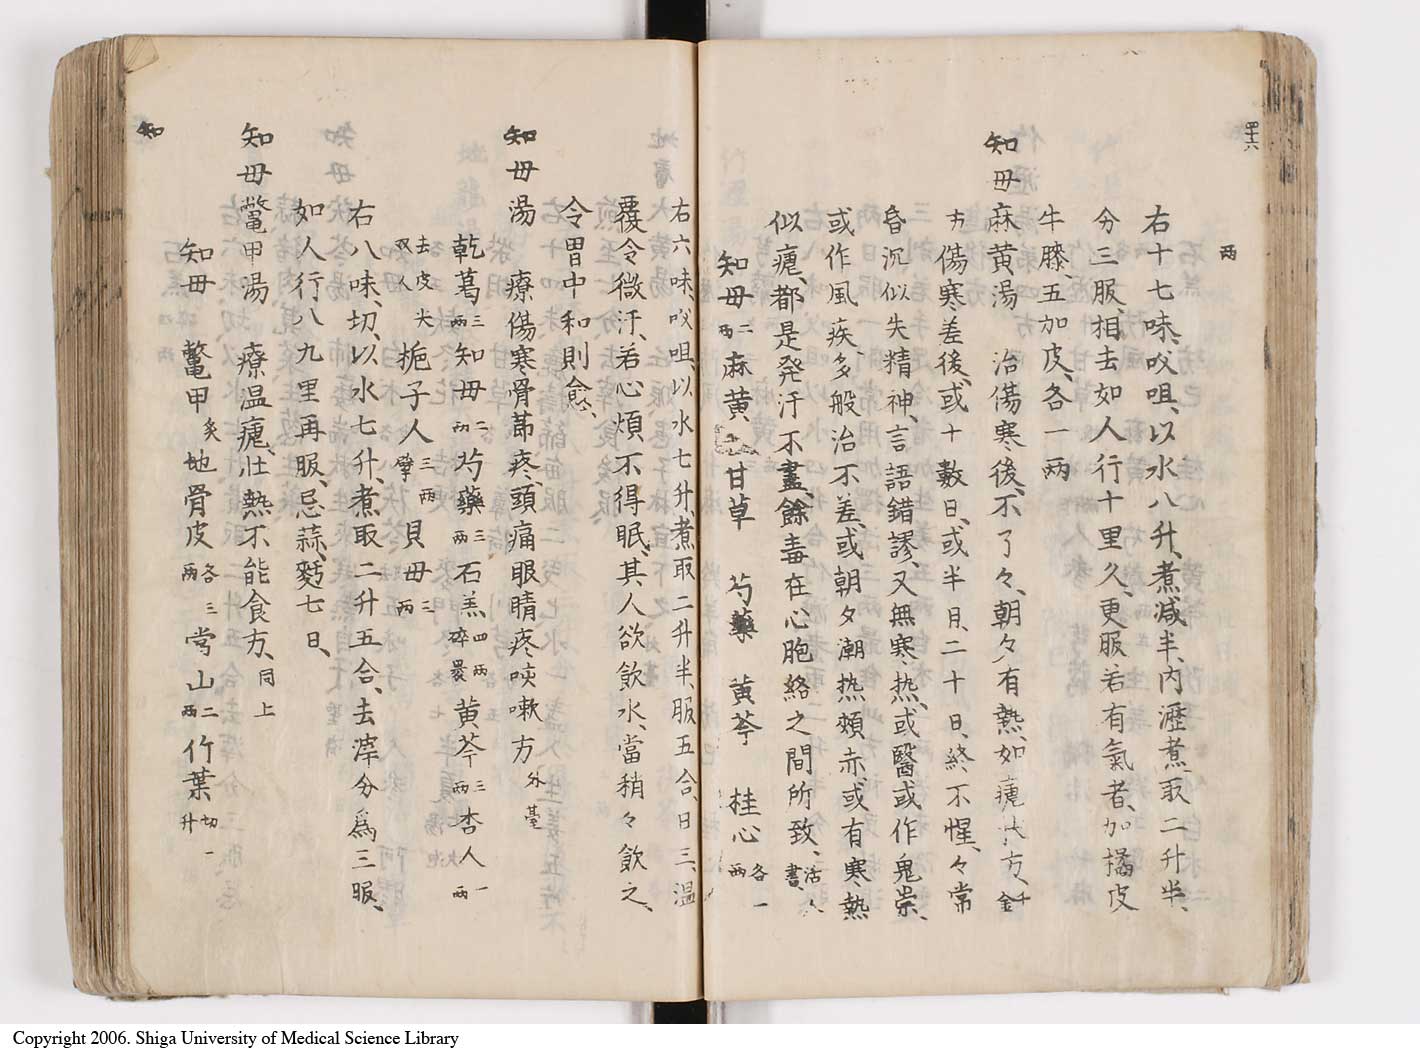 四六
兩
右十七味、㕮咀、以水八升、煮減半、内瀝煮取二升半、
分三服、相去如人行十里久、更服若有氣者、加橘皮
牛膝、五加皮、各一兩
知母麻黄湯　治傷寒後、不了々、朝々有熱、如瘧状方、千金
方傷寒差後、或十數日、或半月、二十日、終不惺々、常
昏沉似失精神、言語錯謬、又無寒熱、或醫或作鬼祟、
或作風疾、多般治不差、或朝夕潮热頬赤、或有寒熱
似瘧、都是発汗不盡、餘毒在心胞絡之間所致、活人書、
知母二兩麻黄甘草　芍藥　黄芩　桂心各一兩
右六味、㕮咀、以水七升、煮取二升半、服五合、日三、温
覆令微汗、若心煩不得眠、其人欲飲水、當稍々飲之、
令胃中和則愈、
知母湯　療傷寒骨節疼、頭痛眼睛疼、咳嗽方外臺
乾葛三兩知母二兩芍藥三兩石羔四兩碎裹黄芩三兩杏人一兩
去皮尖双人梔子人三兩擘貝母三兩
右八味、切、以水七升、煮取二升五合、去滓分爲三服、
如人行八九里再服、忌蒜、麪七日、
知母鼈甲湯　療温瘧、壮熱不能食方、同上
知母　鼈甲炙地骨皮各三兩常山二兩竹葉切一升
知
Copyright 2006. Shiga University of Medical Science Library